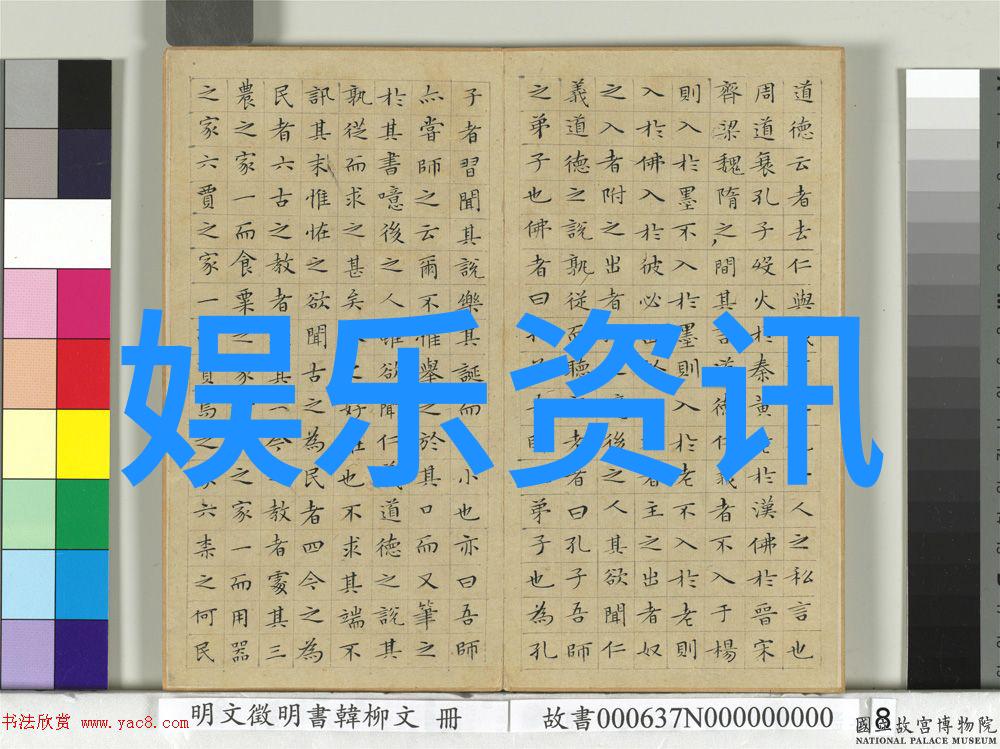 道德云者去仁與人之私言也
周道衰孔子歿火於秦黃老於漢佛於晉宋
齊梁魏隋之間其言道德仁義者不入于楊
則入於墨不入於墨則入於老不入於老則
入於佛入於彼必者主之出者奴
之入者附之出者後之人其欲聞仁
義道德之說孰從而聽老者曰孔子吾師
之弟子也佛者曰弟子也為孔
子者習聞其說樂其誕而小也亦曰吾師
亦嘗師之云爾不惟舉之於其口而又筆之
於其書噫後之人雖欲聞仁義道德之說其
孰從而求之甚矣之好怪也不求其端不
訊其末惟怪之欲聞古之為民者四今之為
民者六古之教者其一今之教者處其三
農之家一而食粟之家之家一而用器
之家六賈之家一資焉之家六柰之何民
娱乐资讯
明文徵明書韓柳文 冊
故書000637N000000000
8
書法欣赏 www.yac8.com
國立故宮博物院
NATIONAL PALACE MUSEUM